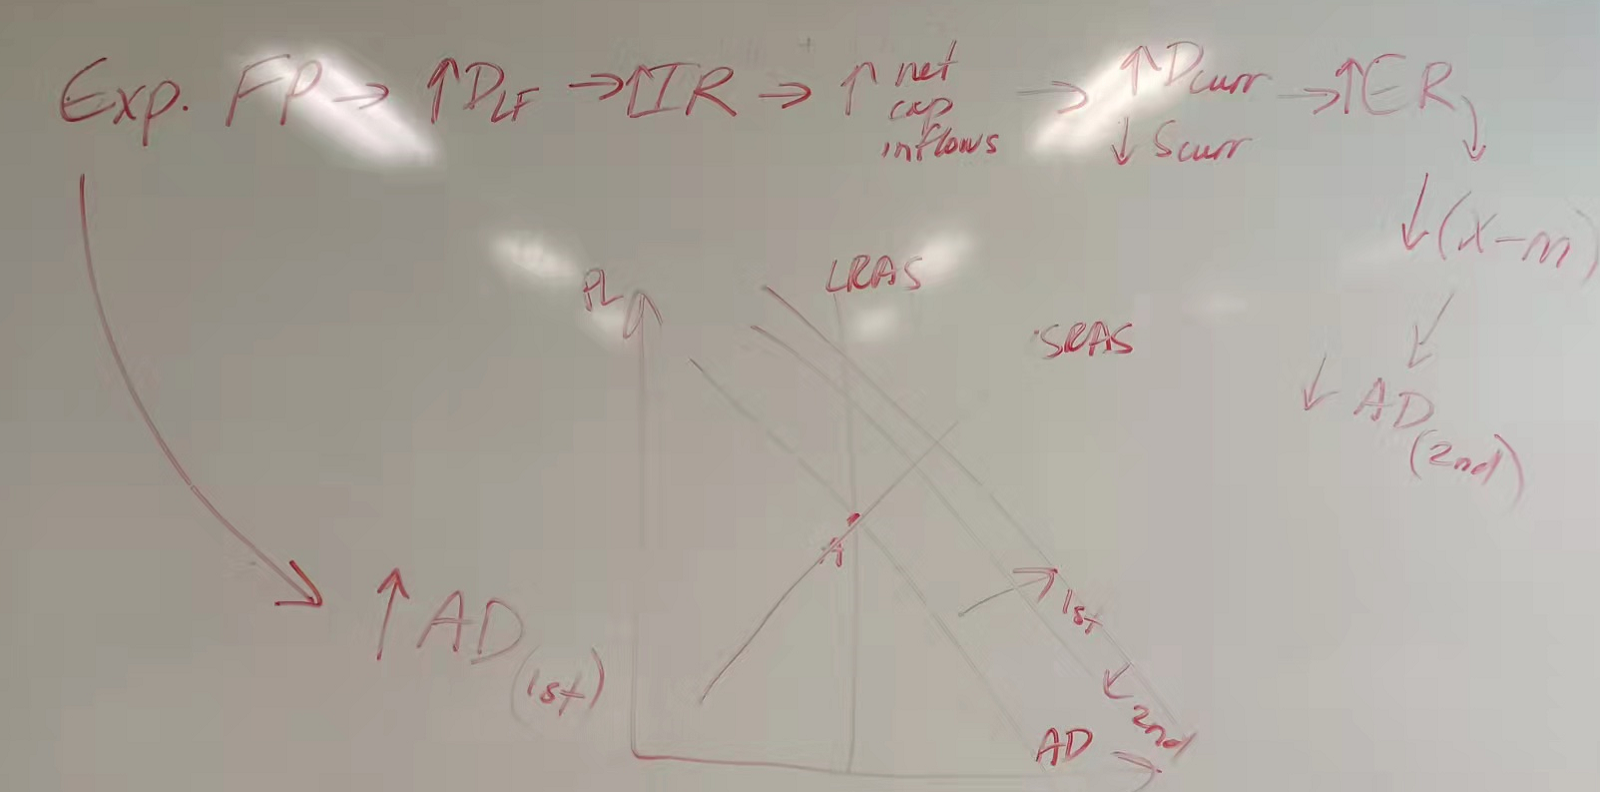 Exp. FP → ↑DLF → ↑IR → ↑ net cap inflows → ↑Dcurr ↓Scurr → ↑ER
↓(X-m)
↓ AD
(2nd)
PL
LRAS
SRAS
A
↑ AD
(1st)
1st
2nd
AD